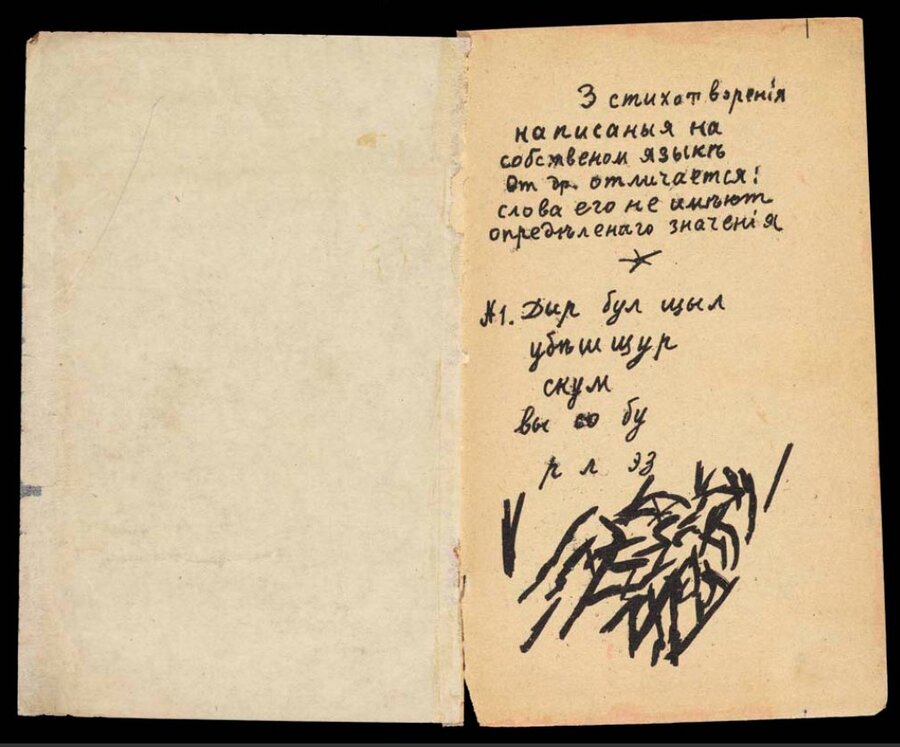 3 стихотворенія
написаныя на
собственом языкѣ
от др. отличается:
слова его не имѣют
опредѣленаго значенія
*
№1. Дыр бул щыл
убѣшщур
скум
вы со бу
р л эз